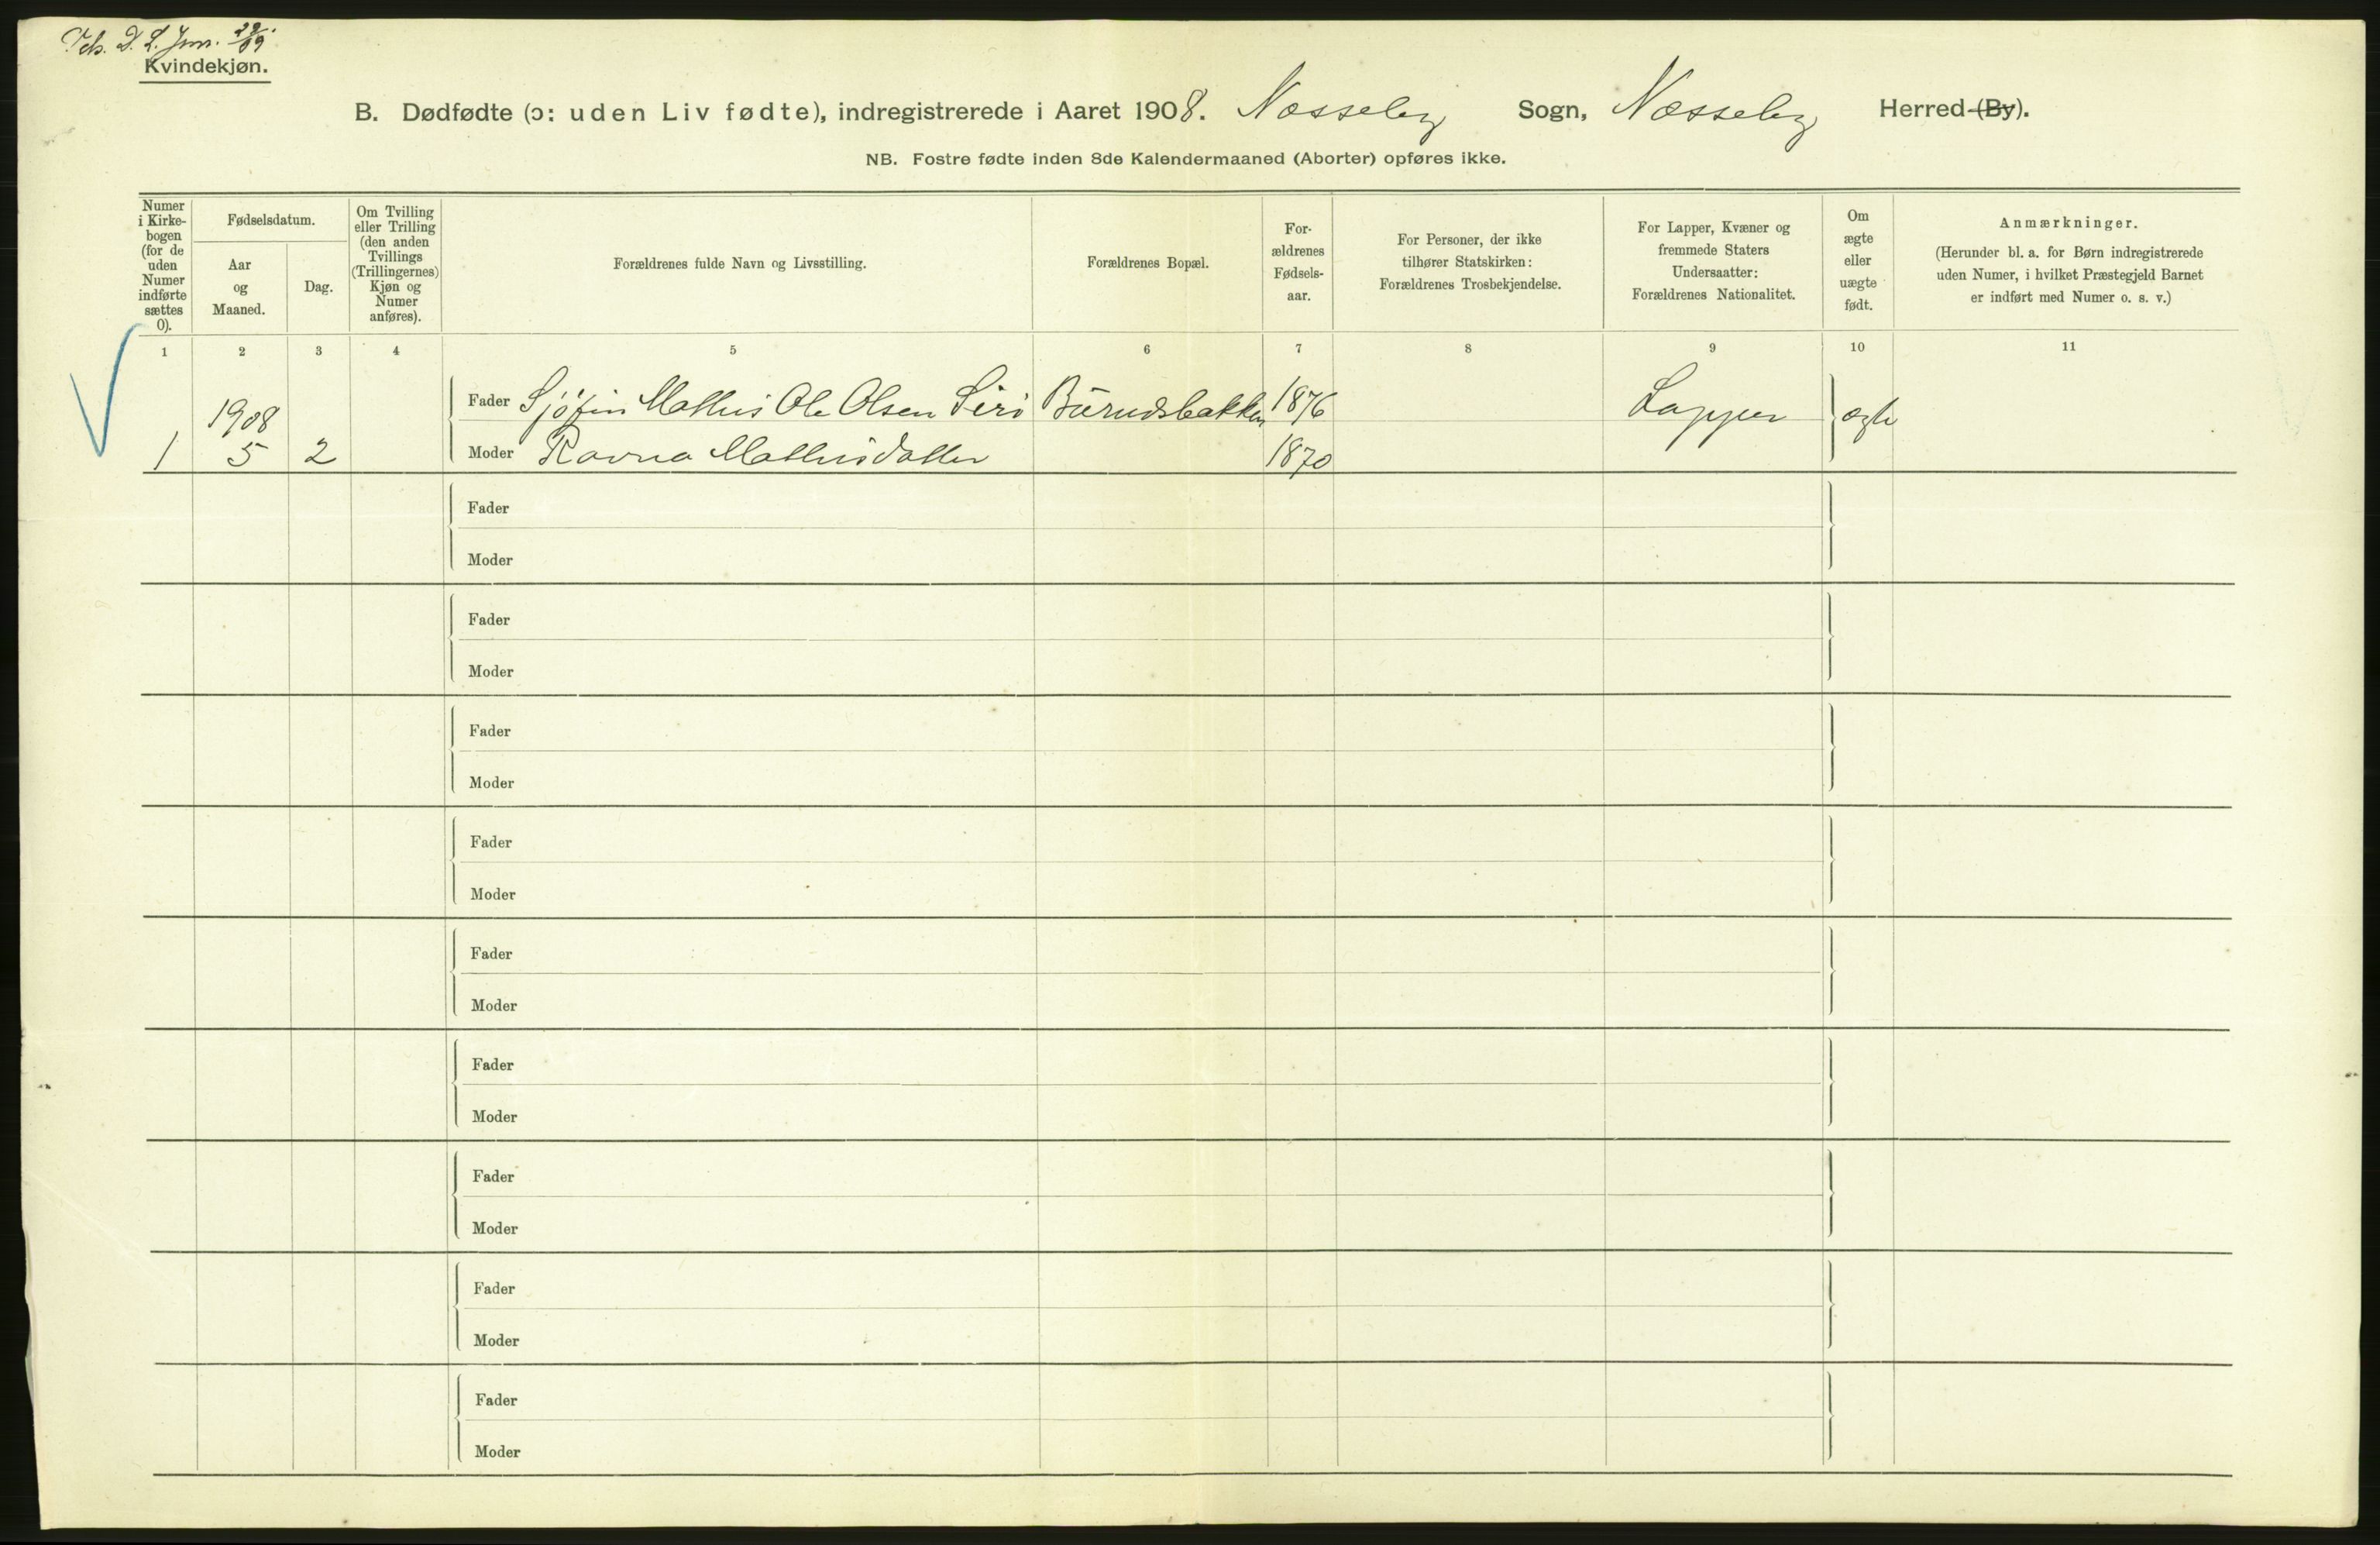 Kvindekjøn.
B. Dødfødte (ɔ: uden Liv fødte), indregistrerede i Aaret 1908. Næsseby Sogn, Næsseby Herred (By).
NB. Fostre fødte inden 8de Kalendermaaned (Aborter) opføres ikke.
Numer
i Kirke-
bogen
(for de
uden
Numer
indførte
sættes
0).
Fødselsdatum.
Aar
og
Maaned.
Dag.
Om Tvilling
eller Trilling
(den anden
Tvillings
(Trillingernes)
Kjøn og
Numer
anføres).
Forældrenes fulde Navn og Livsstilling.
Forældrenes Bopæl.
For-
ældrenes
Fødsels-
aar.
For Personer, der ikke
tilhører Statskirken:
Forældrenes Trosbekjendelse.
For Lapper, Kvæner og
fremmede Staters
Undersaatter:
Forældrenes Nationalitet.
Om
ægte
eller
uægte
født.
Anmærkninger.
(Herunder bl. a. for Børn indregistrerede
uden Numer, i hvilket Præstegjeld Barnet
er indført med Numer o. s. v.)
1 2 3 4 5 6 7 8 9 10 11
1908
Fader Mathis Ole Olsen Siri 1876 Lapper ægte
1 5 2 Moder Ravna Mathisdatter 1870
Fader
Moder
Fader
Moder
Fader
Moder
Fader
Moder
Fader
Moder
Fader
Moder
Fader
Moder
Fader
Moder
Fader
Moder